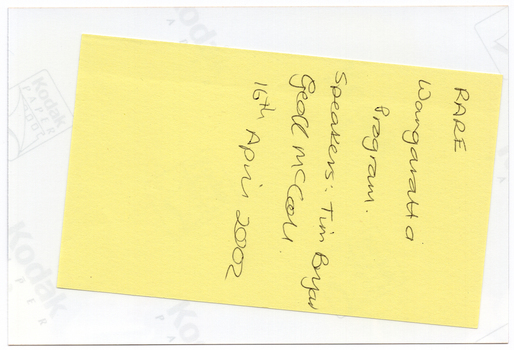 RARE
Wangaratta
Program.
Speakers: Tim Bryar
Geoff McColl.
16th April 2002
Kodak
PAPER
Kodak
PAPER